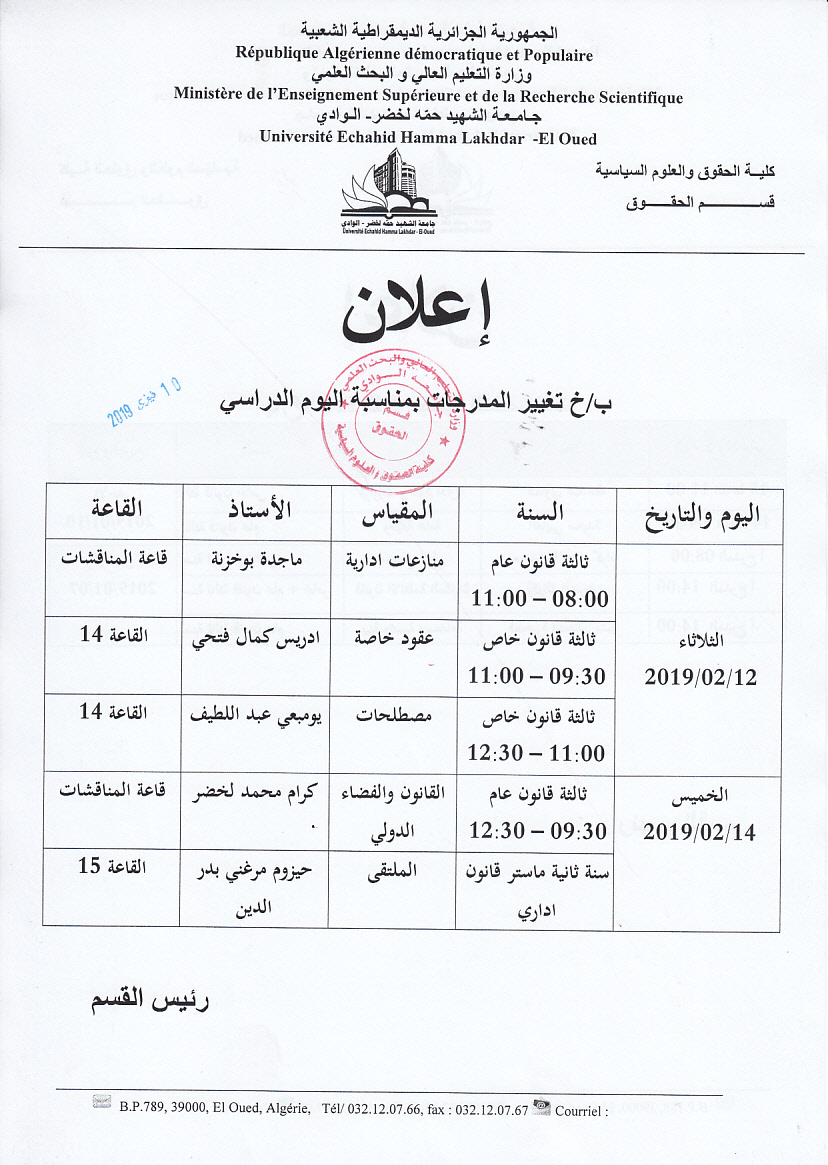 الجمهورية الجزائرية الديمقراطية الشعبية
République Algérienne démocratique et Populaire
وزارة التعليم العالي و البحث العلمي
Ministère de l'Enseignement Supérieure et de la Recherche Scientifique
جامعة الشهيد حمّه لخضر- الوادي
Université Echahid Hamma Lakhdar -El Oued
كلية الحقوق والعلوم السياسية
قسم الحقوق
جامعة الشهيد حمّه لخضر - الوادي
Université Echahid Hamma Lakhdar - El-Oued
إعلان
10 فيفري 2019
ب/خ تغيير المدرجات بمناسبة اليوم الدراسي
قسم
الحقوق
كلية الحقوق والعلوم السياسية
اليوم والتاريخ السنة المقياس الأستاذ القاعة
الثلاثاء
2019/02/12
ثالثة قانون عام منازعات ادارية ماجدة بوخزنة قاعة المناقشات
08:00 – 11:00
ثالثة قانون خاص عقود خاصة ادريس كمال فتحي القاعة 14
09:30 – 11:00
ثالثة قانون خاص مصطلحات يومبعي عبد اللطيف القاعة 14
11:00 – 12:30
الخميس
2019/02/14
ثالثة قانون عام القانون والفضاء كرام محمد لخضر قاعة المناقشات
09:30 – 12:30 الدولي
سنة ثانية ماستر قانون الملتقى حيزوم مرغني بدر القاعة 15
اداري الدين
رئيس القسم
B.P.789, 39000, El Oued, Algérie, Tél/ 032.12.07.66, fax : 032.12.07.67 Courriel :